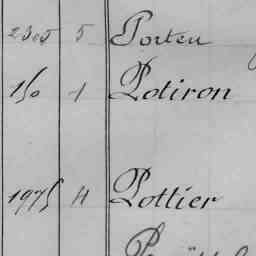 2305 5 Porteu
150 1 Potiron
1975 4 Pottier